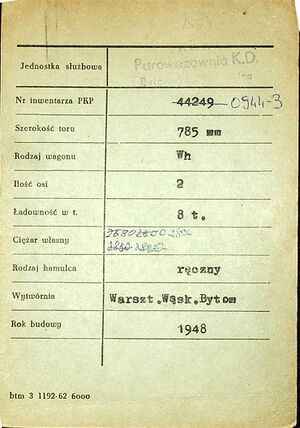 Jednostka służbowa Parowozownia K.D.
Nr inwentarza PKP 44249 0944-3
Szerokość toru 785 mm
Rodzaj wagonu Wh
Ilość osi 2
Ładowność w t. 8 t.
Ciężar własny
Rodzaj hamulca ręczny
Wytwórnia Warszt.Wąsk.Bytom
Rok budowy 1948
btm 3 1192-62 6000